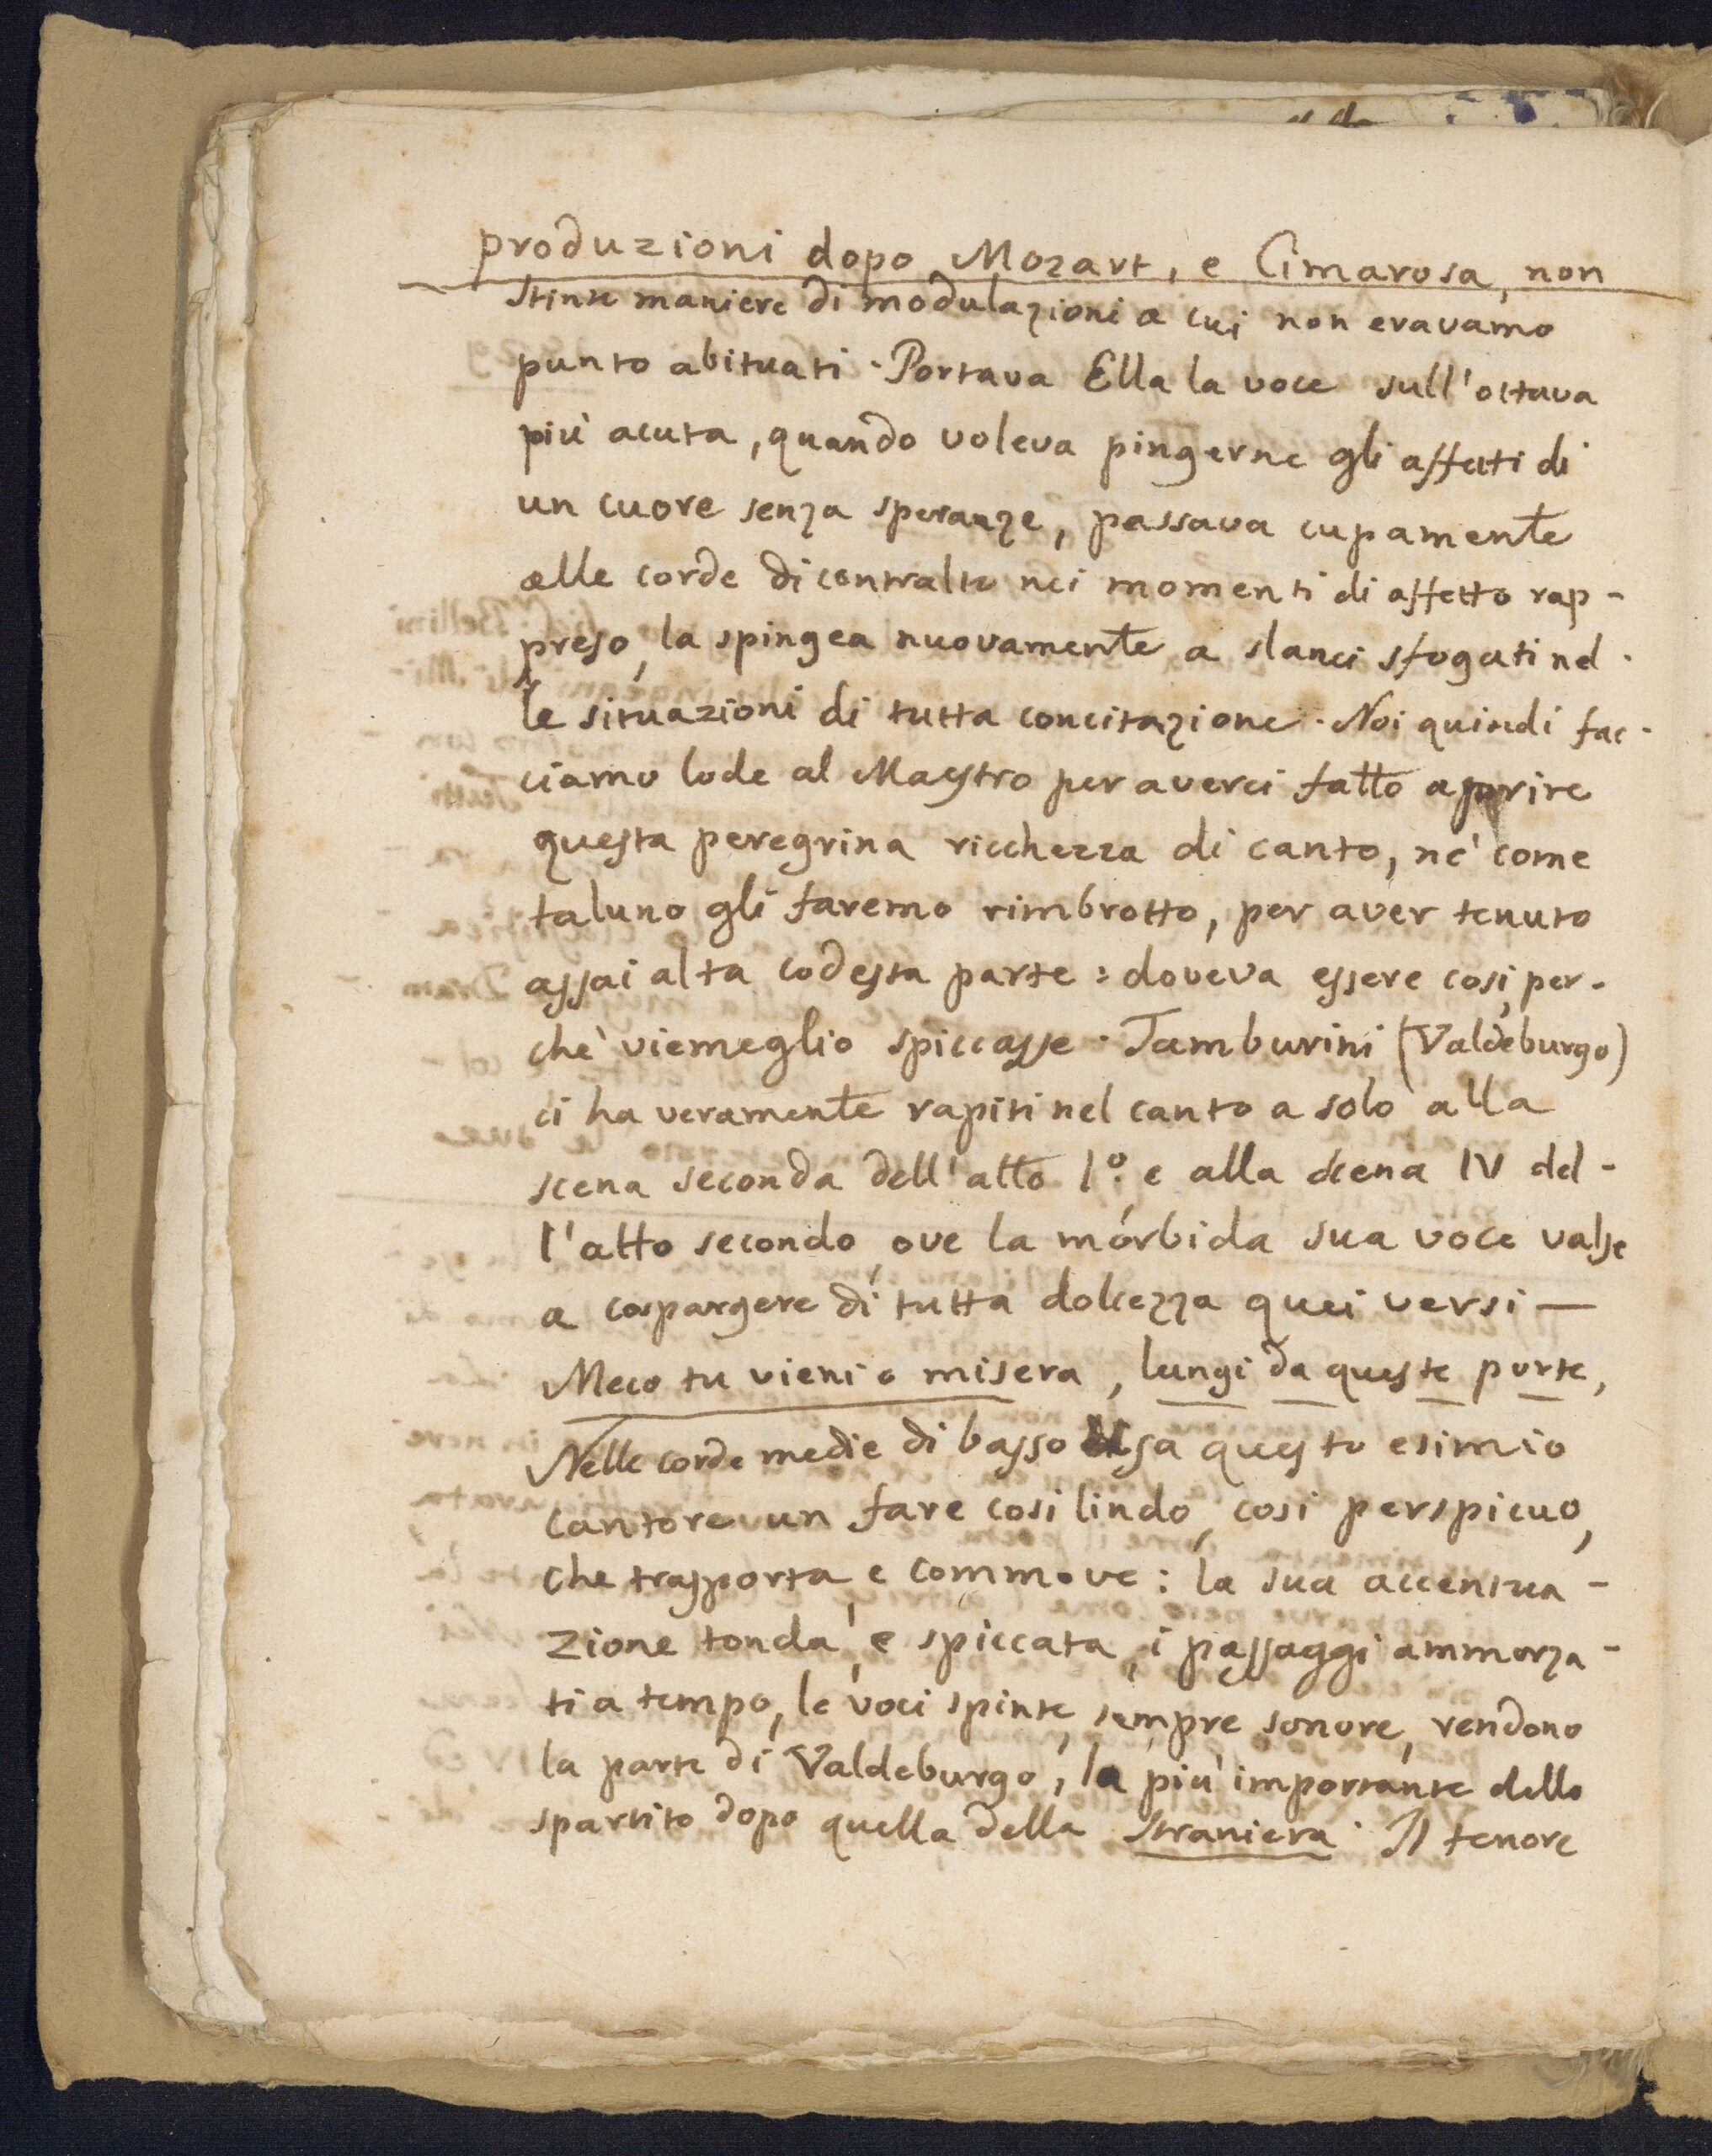 produzioni dopo Mozart, e Cimarosa, non
stinte maniere di modulazioni a cui non eravamo
punto abituati. Portava Ella la voce sull'ottava
più acuta, quando voleva pingerne gli affetti di
un cuore senza speranze, passava cupamente
alle corde di contralto nei momenti di affetto rap-
preso, la spingea nuovamente a slanci sfogati nel-
le situazioni di tutta concitazione. Noi quindi fac-
ciamo lode al Maestro per averci fatto apprire
questa peregrina ricchezza di canto, nè come
taluno gli faremo rimbrotto, per aver tenuto
assai alta codesta parte: doveva essere così, per-
chè viemeglio spiccasse. Tamburini (Valdeburgo)
ci ha veramente rapiti nel canto a solo alla
scena seconda dell'atto 1º. e alla scena IV del-
l'atto secondo, ove la morbida sua voce valse
a cospargere di tutta dolcezza quei versi —
Meco tu vieni o misera, lungi da queste porte,
Nelle corde medie di basso usa questo esimio
cantore un fare così lindo, così perspicuo,
che trasporta, e commove: la sua accentua-
zione tonda, e spiccata, i passaggi ammorza-
ti a tempo, le voci spinte, sempre sonore, rendono
la parte di Valdeburgo, la più importante dello
spartito dopo quella della Straniera. Il tenore